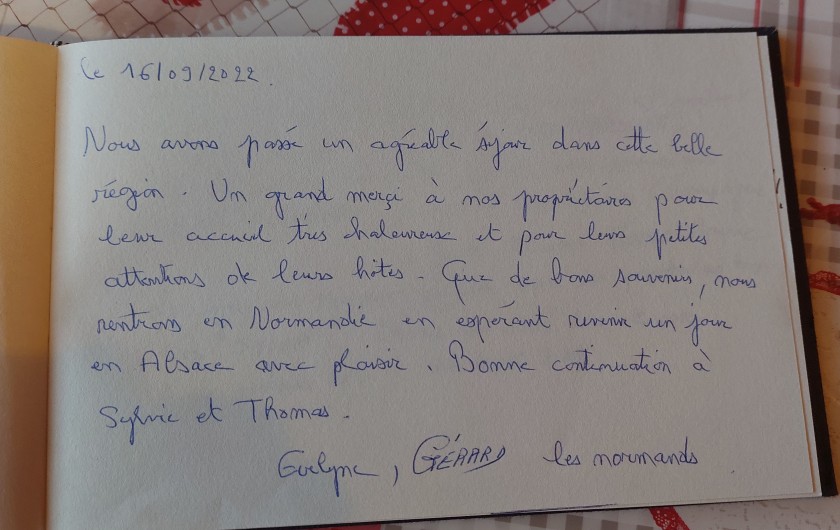 Le 16/09/2022.
Nous avons passé un agréable séjour dans cette belle
région. Un grand merçi à nos propriétaires pour
leur accueil très chaleureux et pour leurs petites
attentions de leurs hôtes. Que de bons souvenirs, nous
rentrons en Normandie en espérant revenir un jour
en Alsace avec plaisir. Bonne continuation à
Sylvie et Thomas.
Evelyne, GÉRARD les normands